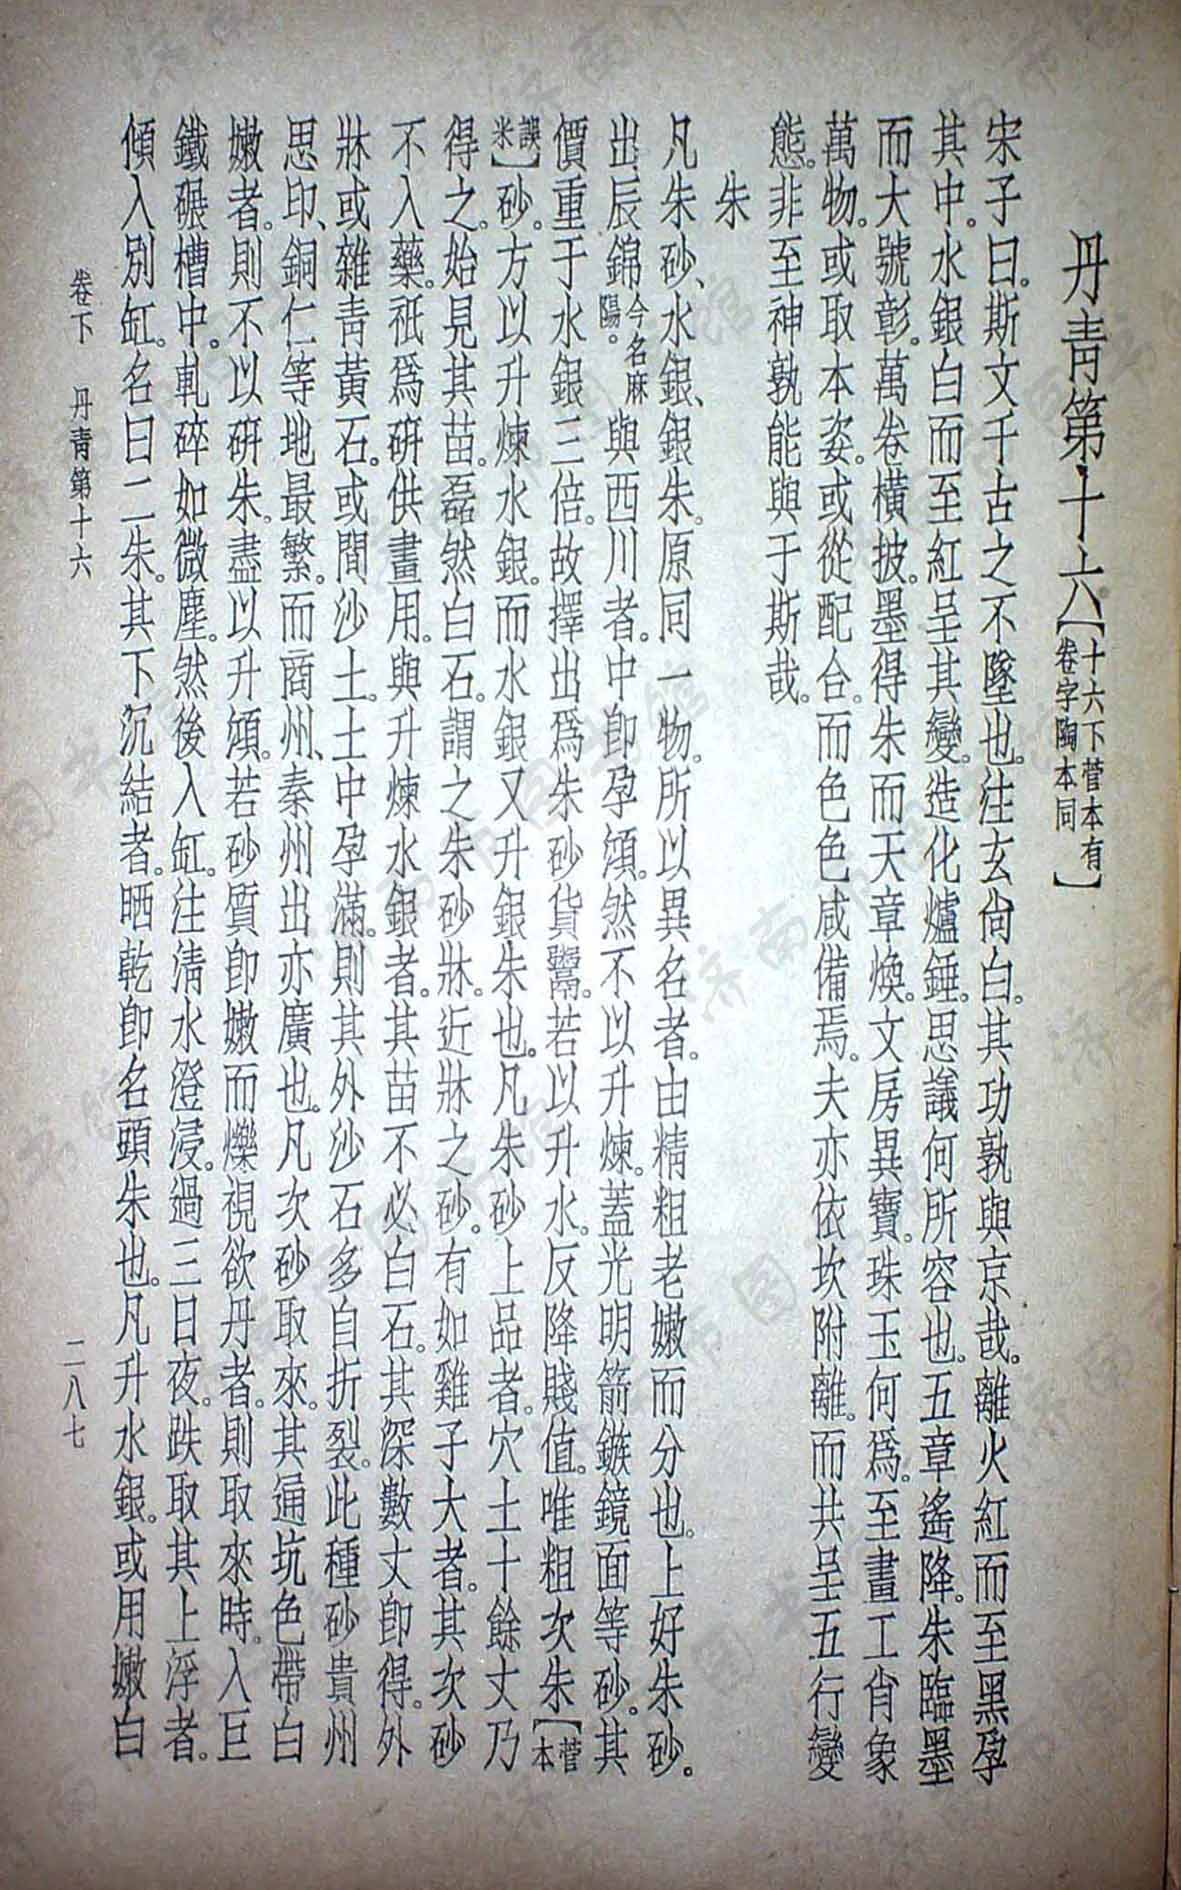 丹青第十六【十六下菅本有卷字陶本同】
宋子曰。斯文千古之不墜也。注玄尙白。其功孰與京哉。離火紅而至黑孕
其中。水銀白而至紅呈其變。造化爐錘。思議何所容也。五章遙降。朱臨墨
而大號彰。萬卷橫披。墨得朱而天章煥。文房異寶。珠玉何爲。至畫工肖象
萬物。或取本姿。或從配合。而色色咸備焉。夫亦依坎附離。而共呈五行變
態。非至神孰能與于斯哉。
朱
凡朱砂、水銀、銀朱。原同一物。所以異名者。由精粗老嫩而分也。上好朱砂。
出辰錦今名麻陽。與西川者。中卽孕澒。然不以升煉。蓋光明箭鏃鏡面等砂。其
價重于水銀三倍。故擇出爲朱砂貨鬻。若以升水。反降賤值。唯粗次朱【菅本
誤米】砂。方以升煉水銀。而水銀又升銀朱也。凡朱砂上品者。穴土十餘丈乃
得之。始見其苗。磊然白石。謂之朱砂牀。近牀之砂。有如雞子大者。其次砂
不入藥。祇爲硏供畫用。與升煉水銀者。其苗不必白石。其深數丈卽得。外
牀或雜靑黃石。或間沙土。土中孕滿。則其外沙石多自折裂。此種砂貴州
思印、銅仁等地最繁。而商州、秦州出亦廣也。凡次砂取來。其通坑色帶白
嫩者。則不以硏朱。盡以升澒。若砂質卽嫩而爍視欲丹者。則取來時。入巨
鐵碾槽中。軋碎如微塵。然後入缸。注清水澄浸。過三日夜。跌取其上浮者。
傾入別缸。名曰二朱。其下沉結者。晒乾卽名頭朱也。凡升水銀。或用嫩白
卷下　丹靑第十六　二八七